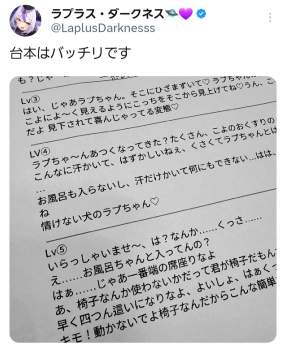 ラプラス・ダークネス🛸💜
@LaplusDarknesss
台本はバッチリです
Lv③
はい、じゃあラブちゃん。そこにひざまずいて♡ ラブちゃん
こよによ〜く見えるようにこっちをそこから見上げてね♡うん、こ
だよ 見下されて喜んじゃってる変態♡
Lv④
ラブちゃ〜んあつくなってきた？たくさん、こよのおくすりの
こんなに汗かいて、はずかしいねぇ、くさくてラブちゃんとは
…
お風呂も入らないし、汗だけかいて何にもできない…はは、
ね
情けない犬のラブちゃん♡
Lv⑤
いらっしゃいませ〜、は？なんか……くっさ……
え……お風呂ちゃんと入ってんの？
はぁ……じゃあ一番端の席座りなよ
あ、椅子なんか使わないかだって君が椅子だもん
早く四つん這いになりなよ、よいしょ、はぁくっ
キモ！動かないでよ椅子なんだからこんな簡単